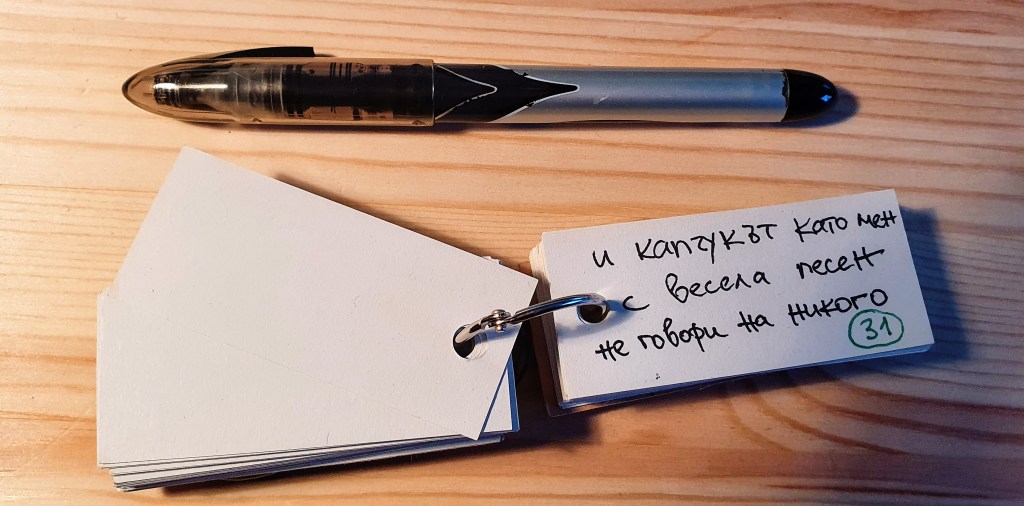 и капчукът като мен
с весела песен
не говори на никого
31